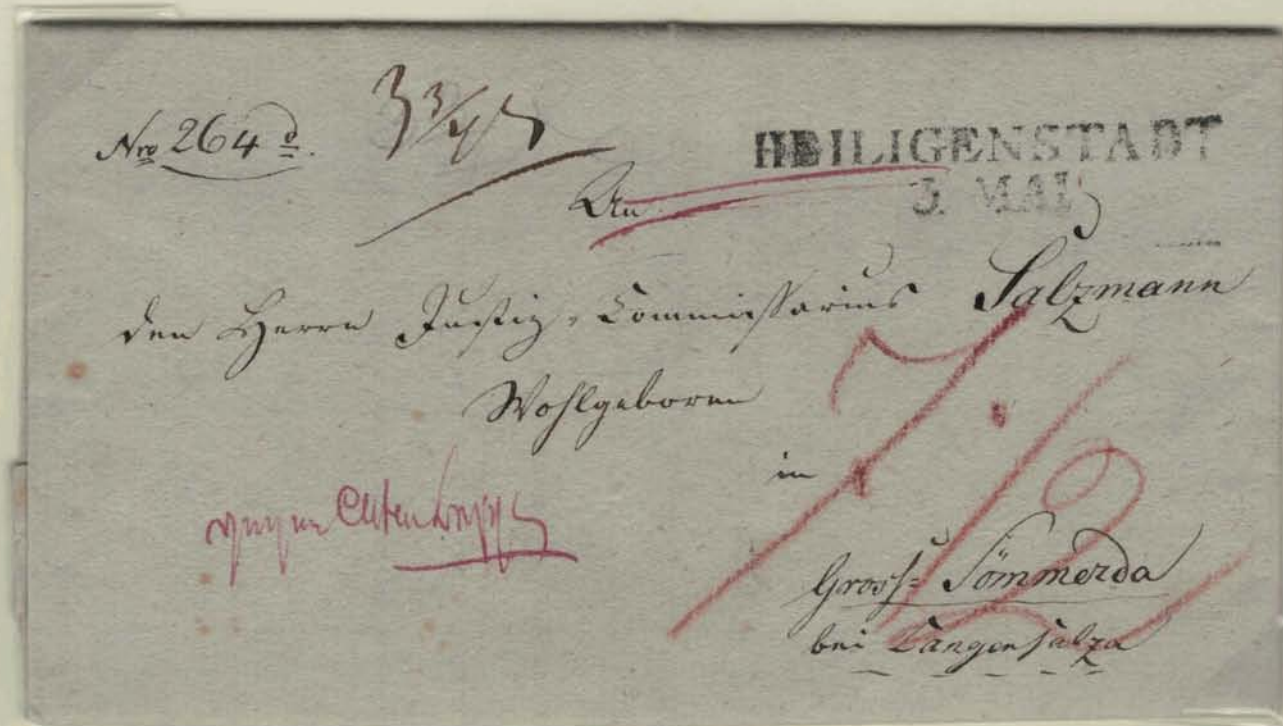 Nro 264 d.
3 3/4
HEILIGENSTADT
3. MAI
An
den Herrn Justiz-Commissarius Salzmann
Wohlgeboren
in
Gross-Sömmerda
bei Langensalza